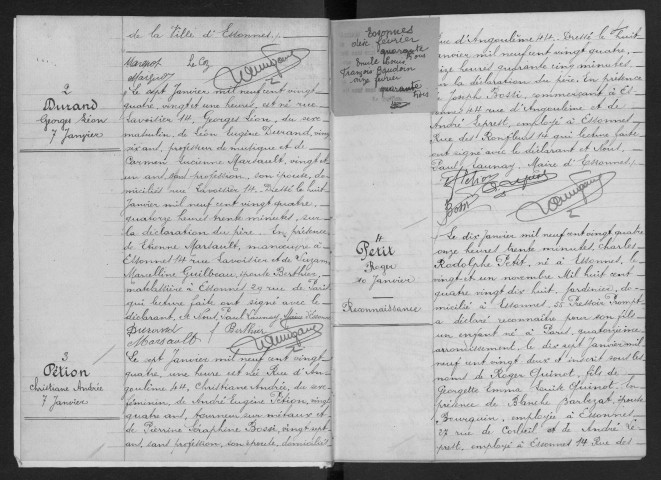 de la Ville d'Essonnes.
Marquot Le Coz
2
Durand
Georges Léon
7 Janvier
Le sept Janvier mil neuf cent vingt
quatre, vingt et une heures, est né rue
Lavoisier 14, Georges Léon, du sexe
masculin, de Léon Eugène Durand, vingt
six ans, professeur de musique et de
Carmen Lucienne Marsault, vingt et
un ans, sans profession, son épouse, do-
miciliés rue Lavoisier 14. Dressé le huit
Janvier mil neuf cent vingt quatre,
quatorze heures trente minutes, sur
la déclaration du père. En présence
de Marsault, manœuvre à
Essonnes 14 rue Lavoisier et de Suzanne
Marcelline Guilbeau, épouse Berthier,
matelassière à Essonnes 29 rue de Paris
qui lecture faite ont signé avec le
déclarant, et Nous, Paul Launay, Maire d'Essonnes
Durand Berthier
Marsault
3
Pétion
Christiane Andrée
7 Janvier
Le sept Janvier mil neuf cent vingt
quatre, une heure est née Rue d'An-
goulême 44, Christiane Andrée, du sexe
féminin, de André Eugène Pétion, vingt
quatre ans, tourneur sur métaux et
de Pierrine Séraphine Bossi, vingt sept
ans, sans profession, son épouse, domiciliés
Essonnes
dix février
quarante
Emile Louis
François Baudoin
onze février
quarante
Rue d'Angoulême 44. Dressé le huit
Janvier mil neuf cent vingt quatre,
heures quarante cinq minutes,
la déclaration du père. En présence
de Joseph Bossi, commerçant à Es-
sonnes 44 rue d'Angoulême et de
André Leprest, employé à Essonnes
Rue des 14 qui lecture faite
ont signé avec le déclarant et Nous,
Paul Launay, Maire d'Essonnes.
Pétion
Bossi
4
Petit
Roger
10 Janvier
Reconnaissance
Le dix Janvier mil neuf cent vingt quatre
onze heures trente minutes, Charles
Rodolphe Petit, né à Essonnes, le
vingt et un novembre Mil huit cent
quatre vingt dix huit, Jardinier, do-
micilié à Essonnes, 52 Pressoir Prompt
a déclaré reconnaître pour son fils
un enfant né à Paris, quatorzième
arrondissement, le dix sept Janvier mil
neuf cent vingt deux et inscrit sous les
noms de Roger Quinot, fils de
Georgette Emma Quinot. En
présence de Blanche Barbezat, épouse
Bourguin, employée à Essonnes
27 rue de Corbeil et de André Le
prest, employé à Essonnes 14 Rue des